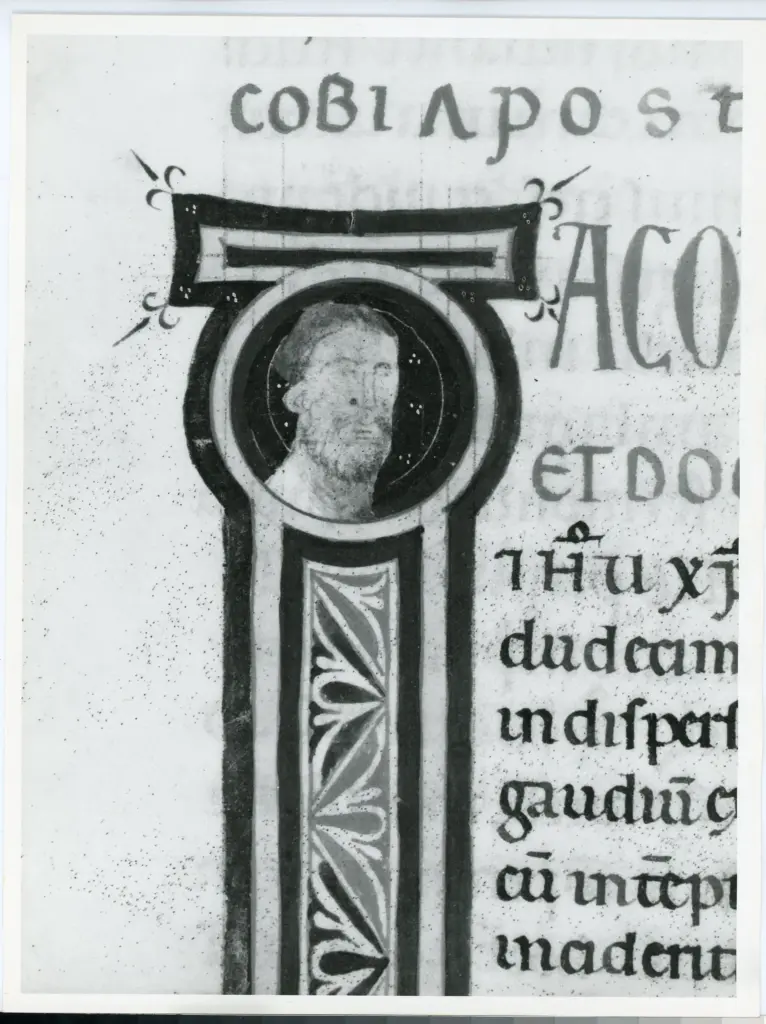 COBI APOST
IACO
ET DO
IHU XP
duodecim
in dispers
gaudiū
cū in tēp
incideritis